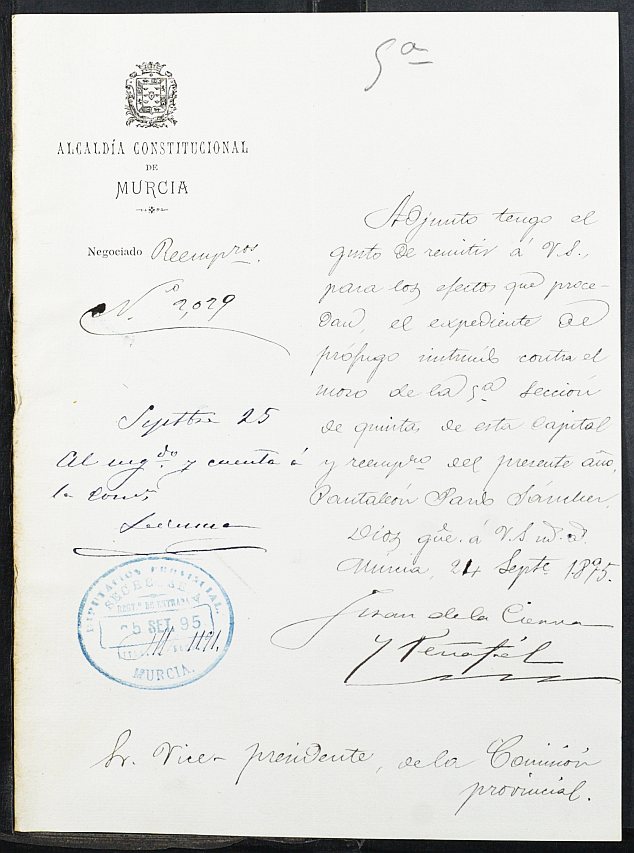 5ª
ALCALDÍA CONSTITUCIONAL
DE
MURCIA
Negociado Reempzos.
N.º 2,029
Septbre 25
Al neg.do y cuenta á
la Comis
Adjunto tengo el
gusto de remitir á V.S.,
para los efectos que proce-
dan, el expediente de
prófugo instruido contra el
mozo de la 5ª sección
de quintas de esta Capital
y reempzo del presente año,
Pantaleón Pardo Sánchez.
Dios gue. á V.S. m.s a.s
Murcia, 24 Septe 1895.
Juan de la Cierva
y Peñafiel
DIPUTACIÓN PROVINCIAL
SECRETARÍA
REGTº DE ENTRADA
25 SET. 95
MURCIA.
Sr. Vice-presidente, de la Comisión
provincial.